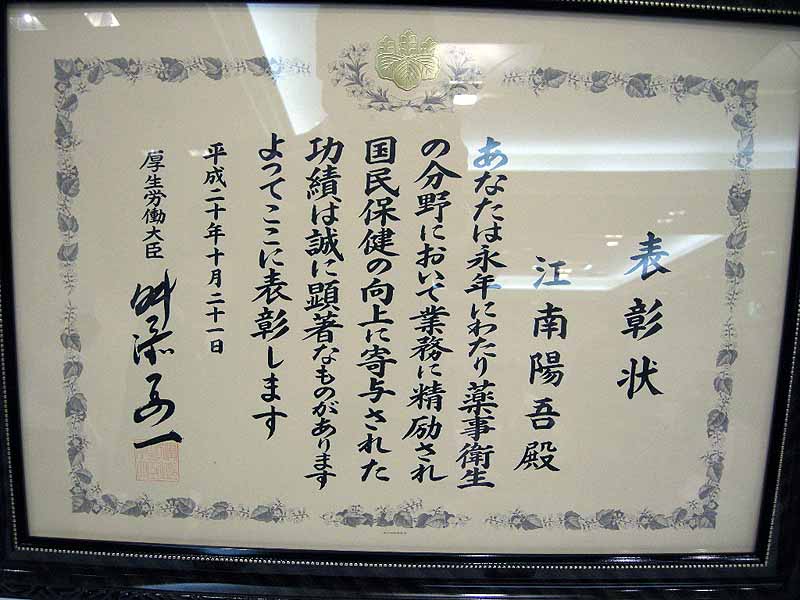 表彰状
江南陽吾殿
あなたは永年にわたり薬事衛生
の分野において業務に精励され
国民保健の向上に寄与された
功績は誠に顕著なものがあります
よってここに表彰します
平成二十年十月二十一日
厚生労働大臣
舛添要一